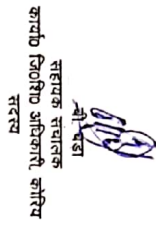 सहायक संचालक
कार्या० जि०शि० अधिकारी, कोरिया
सदस्य